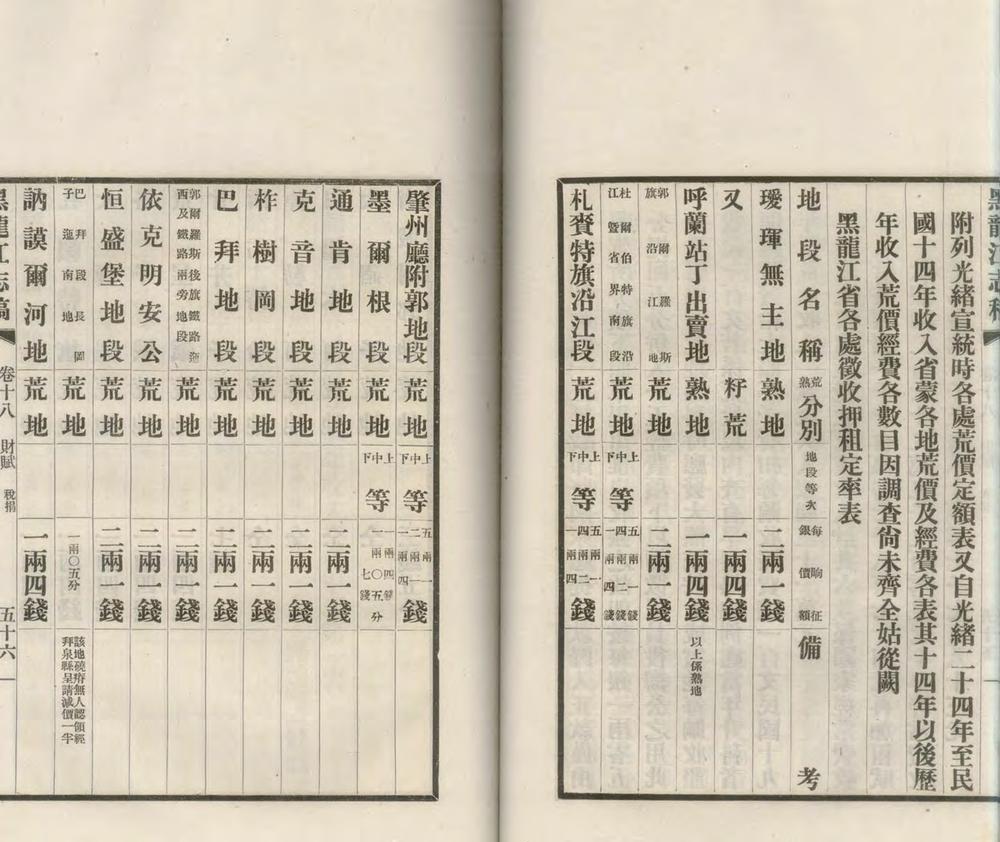 黑龍江志稿
附列光緒宣統時各處荒價定額表又自光緒二十四年至民
國十四年收入省蒙各地荒價及經費各表其十四年以後歷
年收入荒價經費各數目因調查尙未齊全姑從闕
黑龍江省各處徵收押租定率表
地段名稱 荒熟分別 地段等次 每晌征銀價額 備考
璦琿無主地 熟地 二兩一錢
又 籽荒 一兩四錢
呼蘭站丁出賣地 熟地 一兩四錢 以上係熟地
郭爾羅斯旗沿江地 荒地 二兩一錢
杜爾伯特旗沿江暨省界南段 荒地 上中下等 五兩一錢 四兩二錢 一兩四錢
札賚特旗沿江段 荒地 上中下等 五兩一 四兩二 一兩四錢
肇州廳附郭地段 荒地 上中下等 五兩一 二兩一 一兩四錢
墨爾根段 荒地 上中下等 一兩四錢 一兩〇五分 七錢
通肯地段 荒地 二兩一錢
克音地段 荒地 二兩一錢
柞樹岡段 荒地 二兩一錢
巴拜地段 荒地 二兩一錢
郭爾羅斯後旗鐵路迤西及鐵路兩旁地段 荒地 二兩一錢
依克明安公 荒地 二兩一錢
恒盛堡地段 荒地 二兩一錢
巴拜段長岡子迤南地 荒地 一兩〇五分 該地磽瘠無人認領經拜泉縣呈請減價一半
訥謨爾河地 荒地 一兩四錢
黑龍江志稿 卷十八 財賦 稅捐 五十六